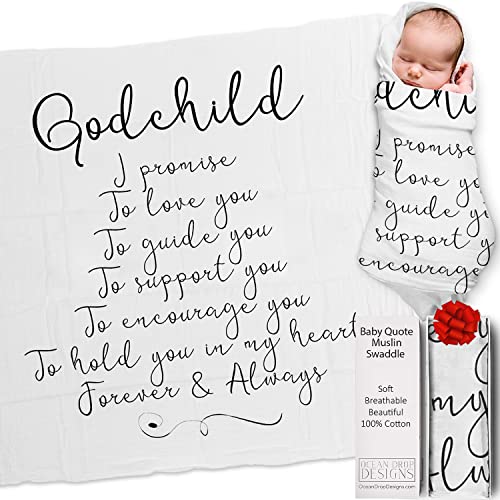 Godchild
I promise
To love you
To guide you
To support you
To encourage you
To hold you in my heart
Forever & Always
I promise
To love you
To guide you
To support you
To encourage
Baby Quote
Muslin
Swaddle
Soft
Breathable
Beautiful
100% Cotton
OCEAN DROP
DESIGNS
OceanDropDesigns.com
my